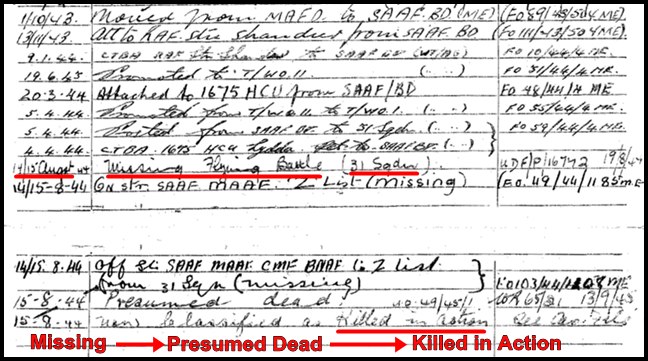 1/10/43. Moved from MAFD. to SAAF. BD (ME) (FO 89/43/504 ME)
13/10/43. Att to RAF. Stn Shandur from SAAF. BD (FO 111/43/504 ME)
9.1.44. CTBA RAF Stn Shandur to SAAF BD FO 10/44/4 ME.
19.6.45 Promoted to T/WO.II. (.. ..) FO 51/44/4 ME
20.3.44 Attached to 1675 HCU from SAAF/BD FO 48/44/4 ME
5.4.44 Promoted from T/WOII to T/WO.I. (.. ..) FO 55/44/4 ME.
5.4.44 Posted from SAAF BD. to 31 Sqdn (.. ..) FO 59/44/4 ME
4.4.44 CTBA. 1675 HCU Lydda to SAAF BD (.. ..)
14/15 August 44 Missing Flying Battle (31 Sqdn). UDF/P/16772 19/8/47
14/15-8-44 On str. SAAF MAAF. 'Z List (Missing) (FO. 49/44/1185 ME
14/15.8.44 Off Str SAAF MAAF CMF BNAF to Z list.
from 31 Sqn (missing) FO103/44/1208 ME
15-8.44 Presumed dead 13/9/45
15/8.44 now Classified as Killed in action
Missing Presumed Dead Killed in Action